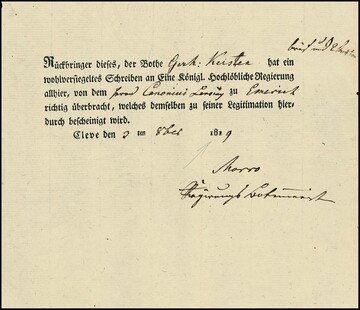 Rückbringer dieses, der Bothe Gerh: Kersten hat ein
wohlversiegeltes Schreiben an Eine Königl. Hochlöbliche Regierung
allhier, von dem Canonicus zu Emerich
richtig überbracht, welches demselben zu seiner Legitimation hier-
durch bescheinigt wird.
Cleve den 3 ten 8ber 1819
Morro
Regierungs Botenmeister